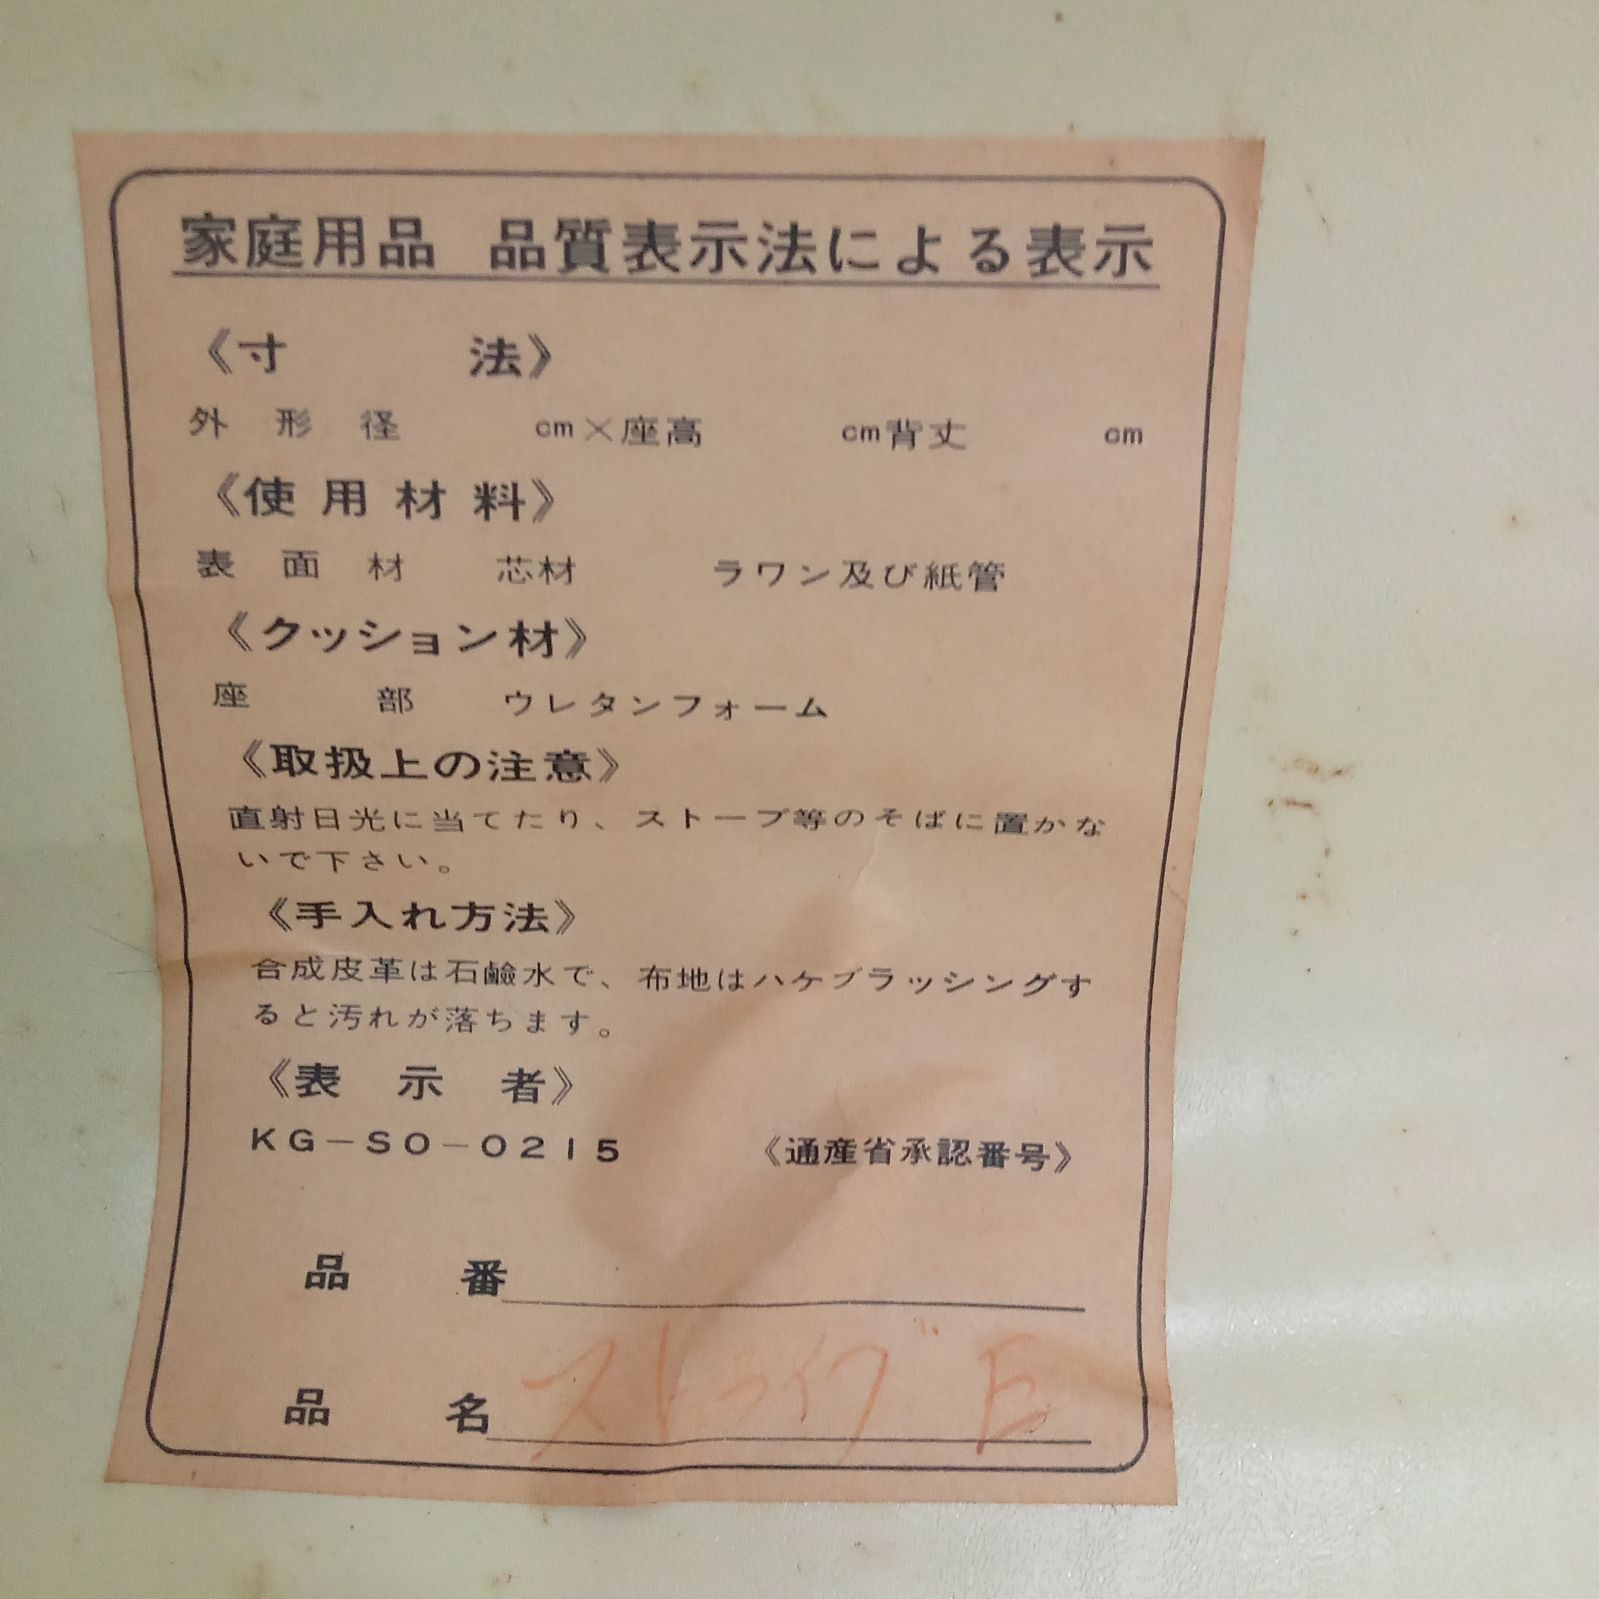 家庭用品 品質表示法による表示
《寸 法》
外形径 cm×座高 cm背丈 cm
《使用材料》
表面材 芯材 ラワン及び紙管
《クッション材》
座部 ウレタンフォーム
《取扱上の注意》
直射日光に当てたり、ストーブ等のそばに置かな
いで下さい。
《手入れ方法》
合成皮革は石鹼水で、布地はハケブラッシングす
ると汚れが落ちます。
《表示者》
KG-SO-0215 《通産省承認番号》
品番
品名 ストライプ